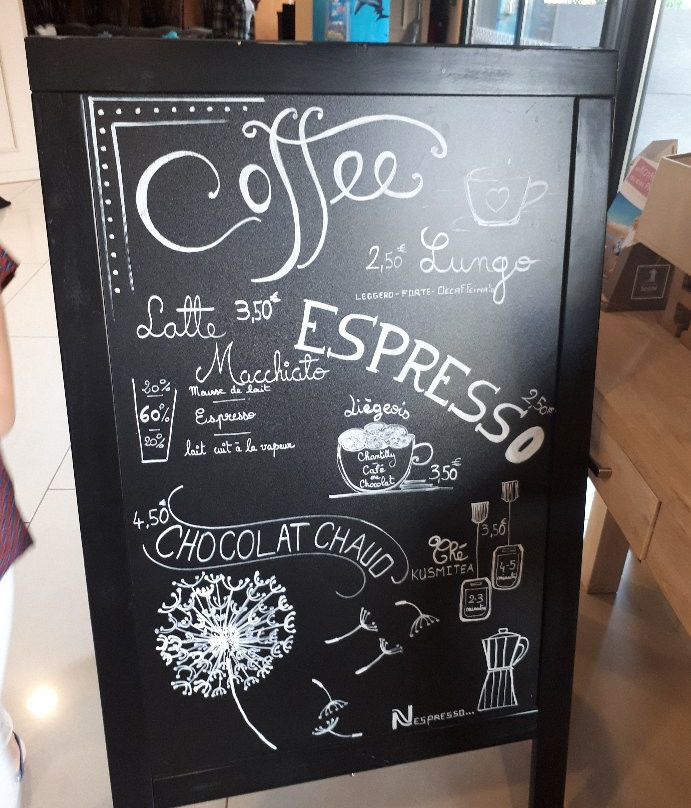 Coffee
2,50€ Lungo
LEGGERO - FORTE - Decaffeinato
Latte 3,50€
Macchiato
ESPRESSO 2,50€
20% Mousse de lait
60% Espresso
20% lait cuit à la vapeur
Liégeois
Chantilly
Café
ou
Chocolat
3,50€
4,50€
CHOCOLAT CHAUD
Thé 3,50€
KUSMITEA
4-5
minutes
2-3
minutes
NESPRESSO...